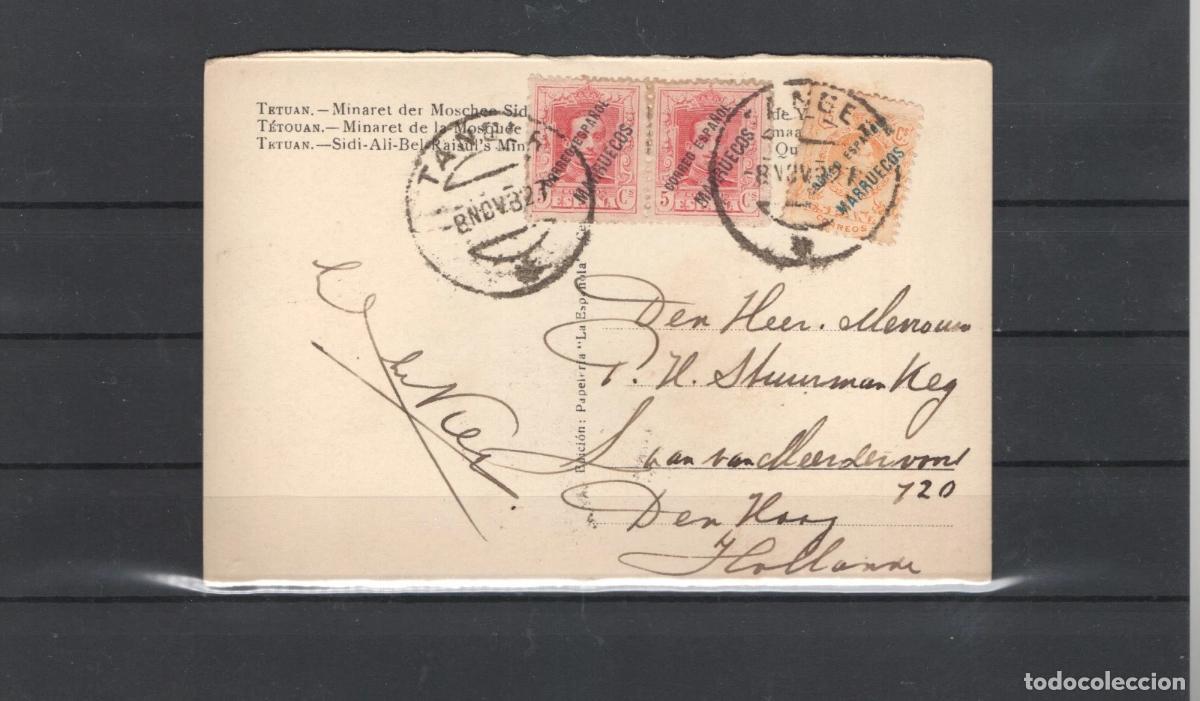 TETUAN.—Minaret der Moschee Sid
TÉTOUAN.—Minaret de la Mosquée
TETUAN.—Sidi-Ali-Bel-Raisul's Min
de Y
maa
Qu
CORREO ESPAÑOL
MARRUECOS
5 Cs
ESPAÑA
CORREO ESPAÑOL
MARRUECOS
5 Cs
ESPAÑA
CORREO ESPAÑOL
MARRUECOS
TANGER
8 NOV 32
8 NOV 32
Edición: Papelería "La Española
Den Heer. Mevrouw
P. H. Stuurman Keg
Laan van Meerdervoort
120
Den Haag
Hollande
todocoleccion